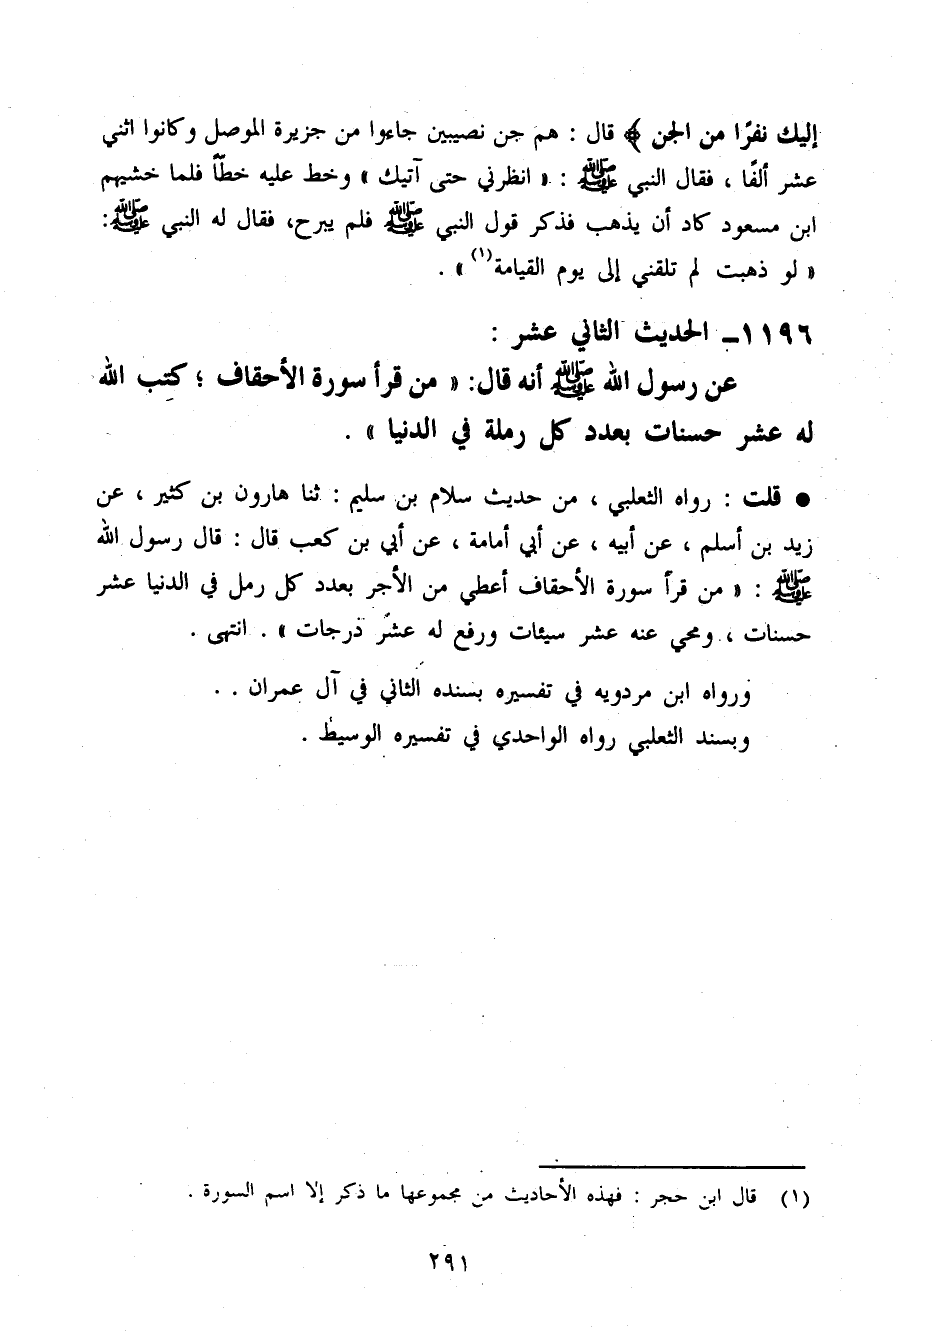 إليك نفرًا من الجن ﴾ قال : هم جن نصيبين جاءوا من جزيرة الموصل وكانوا اثني
عشر ألفًا ، فقال النبي ﷺ : « انظرني حتى آتيك » وخط عليه خطاً فلما خشيهم
ابن مسعود كاد أن يذهب فذكر قول النبي ﷺ فلم يبرح، فقال له النبي ﷺ:
« لو ذهبت لم تلقني إلى يوم القيامة(١) » .
١١٩٦ـ الحديث الثاني عشر :
عن رسول الله ﷺ أنه قال: « من قرأ سورة الأحقاف ؛ كتب الله
له عشر حسنات بعدد كل رملة في الدنيا » .
● قلت : رواه الثعلبي ، من حديث سلام بن سليم : ثنا هارون بن كثير ، عن
زيد بن أسلم ، عن أبيه ، عن أبي أمامة ، عن أبي بن كعب قال : قال رسول الله
ﷺ : « من قرأ سورة الأحقاف أعطي من الأجر بعدد كل رمل في الدنيا عشر
حسنات ، ومحي عنه عشر سيئات ورفع له عشر درجات » . انتهى .
ورواه ابن مردويه في تفسيره بسنده الثاني في آل عمران . .
وبسند الثعلبي رواه الواحدي في تفسيره الوسيط .
(١) قال ابن حجر : فهذه الأحاديث من مجموعها ما ذكر إلا اسم السورة .
٢٩١